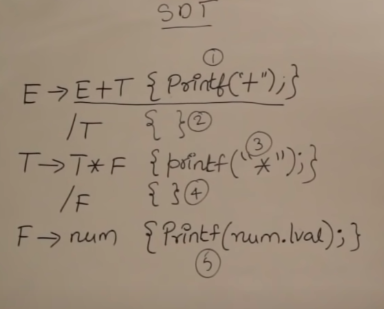 SDT
①
E → E+T { Printf("+"); }
/T { } ②
③
T → T* F { printf("*"); }
/F { } ④
F → num { Printf(num.lval); }
⑤